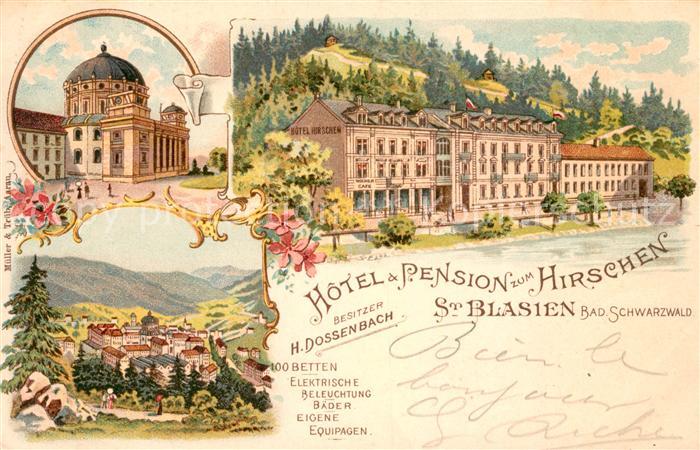 HÔTEL HIRSCHEN
CAFÉ
Müller & Trüb, Aarau.
HÔTEL & PENSION ZUM HIRSCHEN
ST BLASIEN BAD. SCHWARZWALD
BESITZER
H. DOSSENBACH
100 BETTEN
ELEKTRISCHE
BELEUCHTUNG
BÄDER
EIGENE
EQUIPAGEN.
Bien le
bonjour